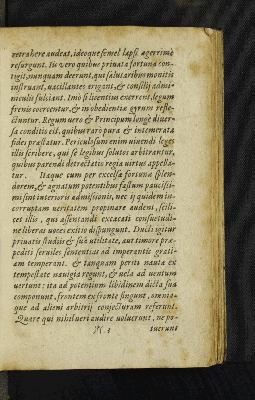 retrahere audeat, ideoque semel lapsi ægerrimè
resurgunt. Iis vero quibus priuata fortuna con-
tigit, nunquam deerunt, qui salutaribus monitis
instruant, vacillantes erigant, & consilij admi-
niculis fulciant. Imò si licentius exerrent, legum
frenis coercentur, & in obedientiæ gyrum refle-
ctuntur. Regum vero & Principum longè diuer-
sa conditio est, quibus raro pura & intemerata
fides præstatur. Periculosum enim viuendi leges
illis scribere, qui se legibus solutos arbitrantur,
quibus parendi detrectatio regia virtus appella-
tur. Itaque cum per excelsa fortunæ splen-
dorem, & agnatum potentibus fastum paucissi-
mi sint interioris admissionis, nec ij quidem in-
corruptam veritatem propinare audent, scili-
cet illis, qui assentandi excæcati consuetudi-
ne liberas voces exitio dispungunt. Ducti igitur
priuatis studijs & sua vtilitate, aut timore præ-
pediti seruiles sententias ad imperantis grati-
am temperant. & tanquam periti nautæ ex
tempestate nauigia regunt, & vela ad uentum
uertunt: ita ad potentium libidinem dicta sua
componunt, frontem ex fronte fingunt, omnia-
que ad alieni arbitrij coniecturam referunt.
Quare qui nihil ueri audire uoluerunt, ne po-
M 3 tuerunt